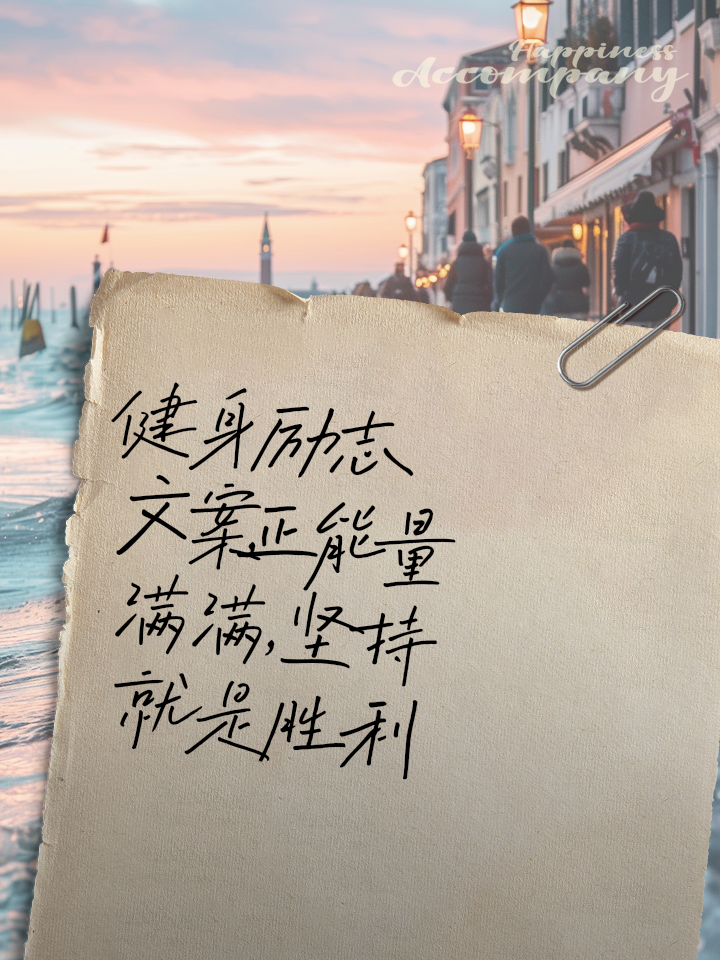 Happiness
Accompany
健身励志
文案,正能量
满满,坚持
就是胜利